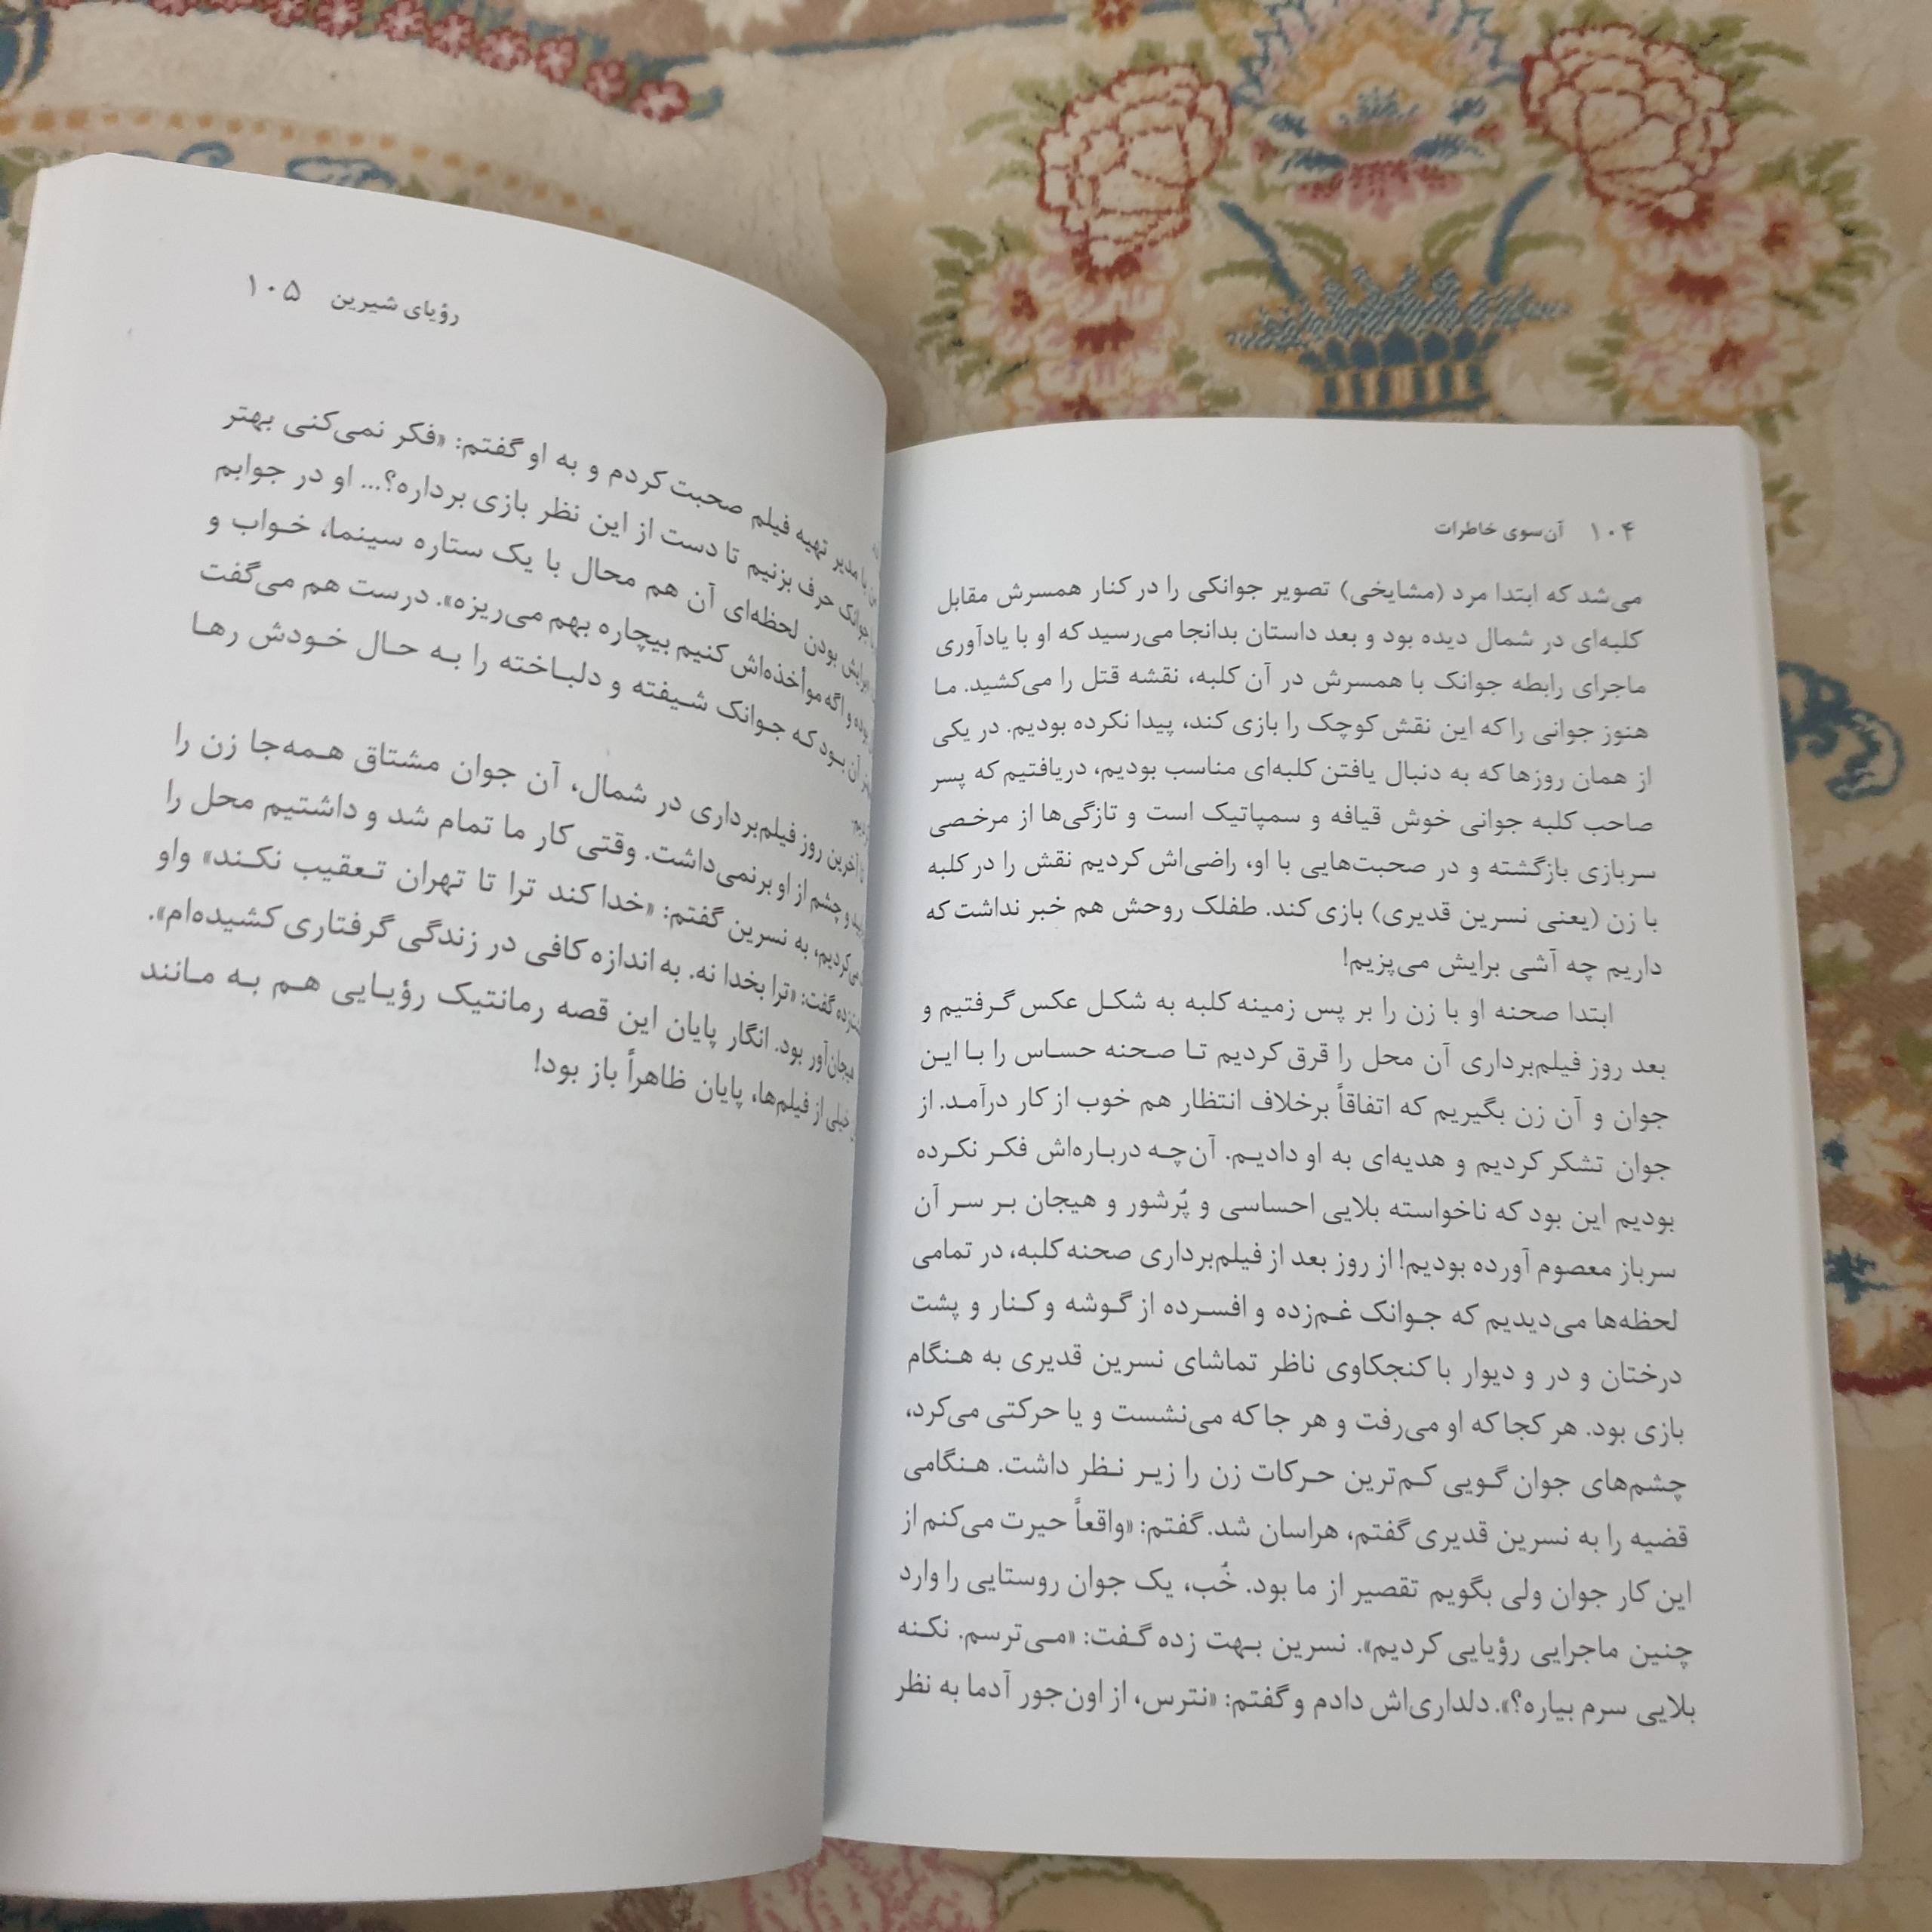 ۱۰۴ آن‌سوی خاطرات
می‌شد که ابتدا مرد (مشایخی) تصویر جوانکی را در کنار همسرش مقابل
کلبه‌ای در شمال دیده بود و بعد داستان بدانجا می‌رسید که او با یادآوری
ماجرای رابطه جوانک با همسرش در آن کلبه، نقشه قتل را می‌کشید. ما
هنوز جوانی را که این نقش کوچک را بازی کند، پیدا نکرده بودیم. در یکی
از همان روزها که به دنبال یافتن کلبه‌ای مناسب بودیم، دریافتیم که پسر
صاحب کلبه جوانی خوش قیافه و سمپاتیک است و تازگی‌ها از مرخصی
سربازی بازگشته و در صحبت‌هایی با او، راضی‌اش کردیم نقش را در کلبه
با زن (یعنی نسرین قدیری) بازی کند. طفلک روحش هم خبر نداشت که
داریم چه آشی برایش می‌پزیم!
ابتدا صحنه او با زن را بر پس زمینه کلبه به شکل عکس گرفتیم و
بعد روز فیلم‌برداری آن محل را قرق کردیم تا صحنه حساس را با این
جوان و آن زن بگیریم که اتفاقاً برخلاف انتظار هم خوب از کار درآمد. از
جوان تشکر کردیم و هدیه‌ای به او دادیم. آن‌چه درباره‌اش فکر نکرده
بودیم این بود که ناخواسته بلایی احساسی و پُرشور و هیجان بر سر آن
سرباز معصوم آورده بودیم! از روز بعد از فیلم‌برداری صحنه کلبه، در تمامی
لحظه‌ها می‌دیدیم که جوانک غم‌زده و افسرده از گوشه و کنار و پشت
درختان و در و دیوار با کنجکاوی ناظر تماشای نسرین قدیری به هنگام
بازی بود. هر کجا که او می‌رفت و هر جا که می‌نشست و یا حرکتی می‌کرد،
چشم‌های جوان گویی کم‌ترین حرکات زن را زیر نظر داشت. هنگامی
قضیه را به نسرین قدیری گفتم، هراسان شد. گفتم: «واقعاً حیرت می‌کنم از
این کار جوان ولی بگویم تقصیر از ما بود. خُب، یک جوان روستایی را وارد
چنین ماجرایی رؤیایی کردیم». نسرین بهت زده گفت: «می‌ترسم. نکنه
بلایی سرم بیاره؟». دلداری‌اش دادم و گفتم: «نترس، از اون‌جور آدما به نظر
رؤیای شیرین ۱۰۵
با مدیر تهیه فیلم صحبت کردم و به او گفتم: «فکر نمی‌کنی بهتر
جوانک حرف بزنیم تا دست از این نظر بازی برداره؟... او در جوابم
برایش بودن لحظه‌ای آن هم محال با یک ستاره سینما، خواب و
بوده و اگه موأخذه‌اش کنیم بیچاره بهم می‌ریزه». درست هم می‌گفت
آن بود که جوانک شیفته و دلباخته را به حال خودش رها
تا آخرین روز فیلم‌برداری در شمال، آن جوان مشتاق همه‌جا زن را
و چشم از او برنمی‌داشت. وقتی کار ما تمام شد و داشتیم محل را
می‌کردیم، به نسرین گفتم: «خدا کند ترا تا تهران تعقیب نکند» واو
گفت: «ترا بخدا نه. به اندازه کافی در زندگی گرفتاری کشیده‌ام».
هیجان‌آور بود. انگار پایان این قصه رمانتیک رؤیایی هم به مانند
خیلی از فیلم‌ها، پایان ظاهراً باز بود!